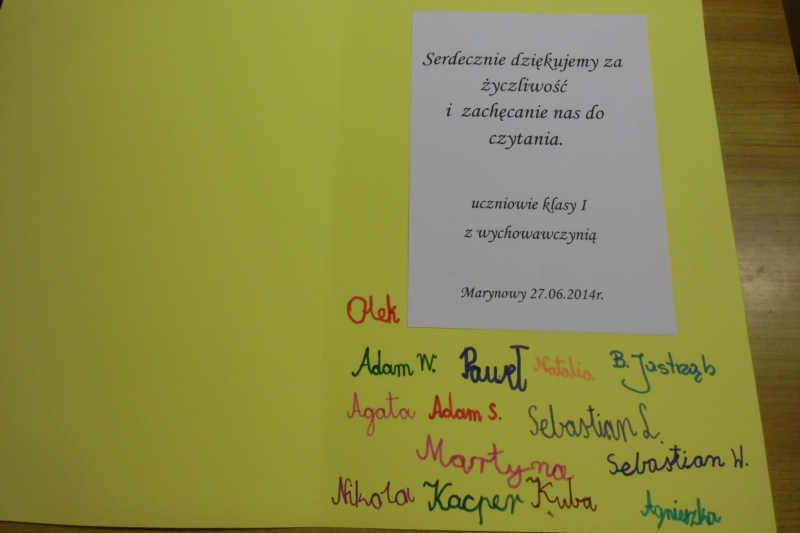 Serdecznie dziękujemy za
życzliwość
i zachęcanie nas do
czytania.
uczniowie klasy I
z wychowawczynią
Marynowy 27.06.2014r.
Olek
Adam W. Paweł Natalia B. Jastrząb
Agata Adam S. Sebastian L.
Martyna Sebastian W.
Nikola Kacper Kuba Agnieszka